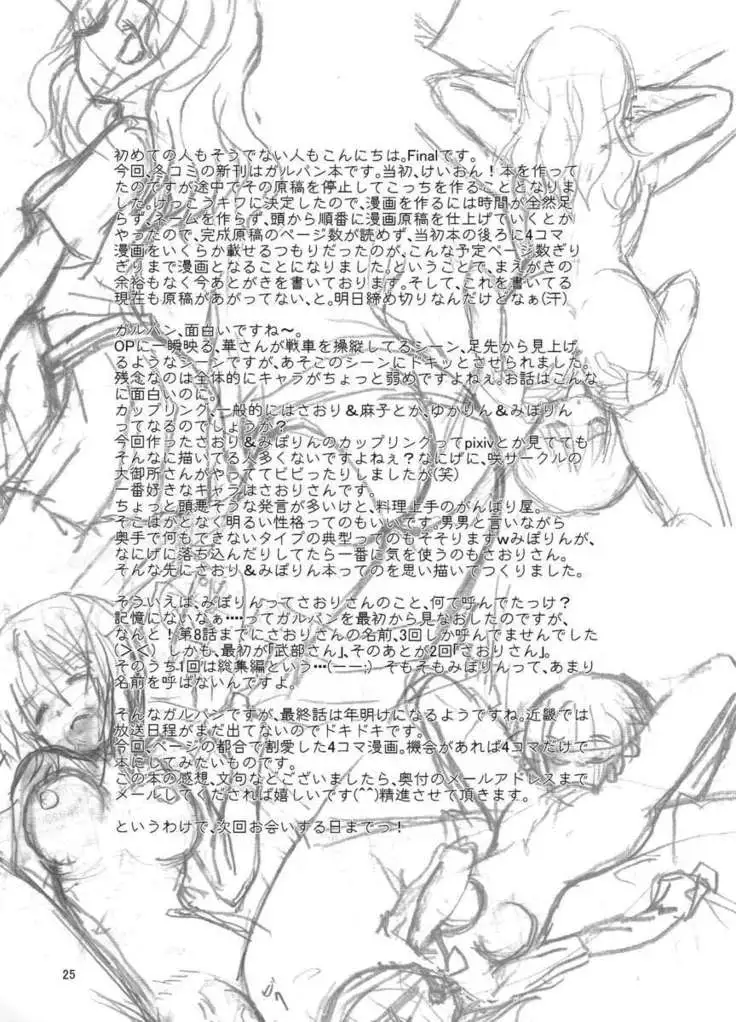 初めての人もそうでない人もこんにちは。Finalです。
今回、冬コミの新刊はガルパン本です。当初、けいおん！本を作って
たのですが途中でその原稿を停止してこっちを作ることとなりま
した。けっこうキワに決定したので、漫画を作るには時間が全然足
らず、ネームを作らず、頭から順番に漫画原稿を仕上げていくとか
やったので、完成原稿のページ数が読めず、当初本の後ろに4コマ
漫画をいくらか載せるつもりだったのが、こんな予定ページ数ぎり
ぎりまで漫画となることになりました。ということで、まえがきの
余裕もなく今あとがきを書いております。そして、これを書いてる
現在も原稿があがってない、と。明日締め切りなんだけどなぁ(汗)
ガルパン、面白いですね～。
OPに一瞬映る、華さんが戦車を操縦してるシーン、足先から見上げ
るようなシーンですが、あそこのシーンにドキッとさせられました。
残念なのは全体的にキャラがちょっと弱めですよねぇ。お話はこんな
に面白いのに。
カップリング、一般的にはさおり＆麻子とか、ゆかりん＆みぽりん
ってなるのでしょうか？
今回作ったさおり＆みぽりんのカップリングってpixivとか見てても
そんなに描いてる人多くないですよねぇ？なにげに、咲サークルの
大御所さんがやっててビビったりしましたが(笑)
一番好きなキャラはさおりさんです。
ちょっと頭悪そうな発言が多いけど、料理上手のがんばり屋。
そこはかとなく明るい性格ってのもいいです。男男と言いながら
奥手で何もできないタイプの典型ってのもそそりますwみぽりんが、
なにげに落ち込んだりしてたら一番に気を使うのもさおりさん。
そんな先にさおり＆みぽりん本ってのを思い描いてつくりました。
そういえば、みぽりんってさおりさんのこと、何て呼んでたっけ？
記憶にないなぁ‥‥ってガルパンを最初から見なおしたのですが、
なんと！第8話までにさおりさんの名前、3回しか呼んでませんでした
(＞＜)　しかも、最初が「武部さん」、そのあとが2回「さおりさん」。
そのうち1回は総集編という…(ーー;)　そもそもみぽりんって、あまり
名前を呼ばないんですよ。
そんなガルパンですが、最終話は年明けになるようですね。近畿では
放送日程がまだ出てないのでドキドキです。
今回、ページの都合で割愛した4コマ漫画。機会があれば4コマだけで
本にしてみたいものです。
この本の感想、文句などございましたら、奥付のメールアドレスまで
メールしてくだされば嬉しいです(^^)精進させて頂きます。
というわけで、次回お会いする日までっ！
25